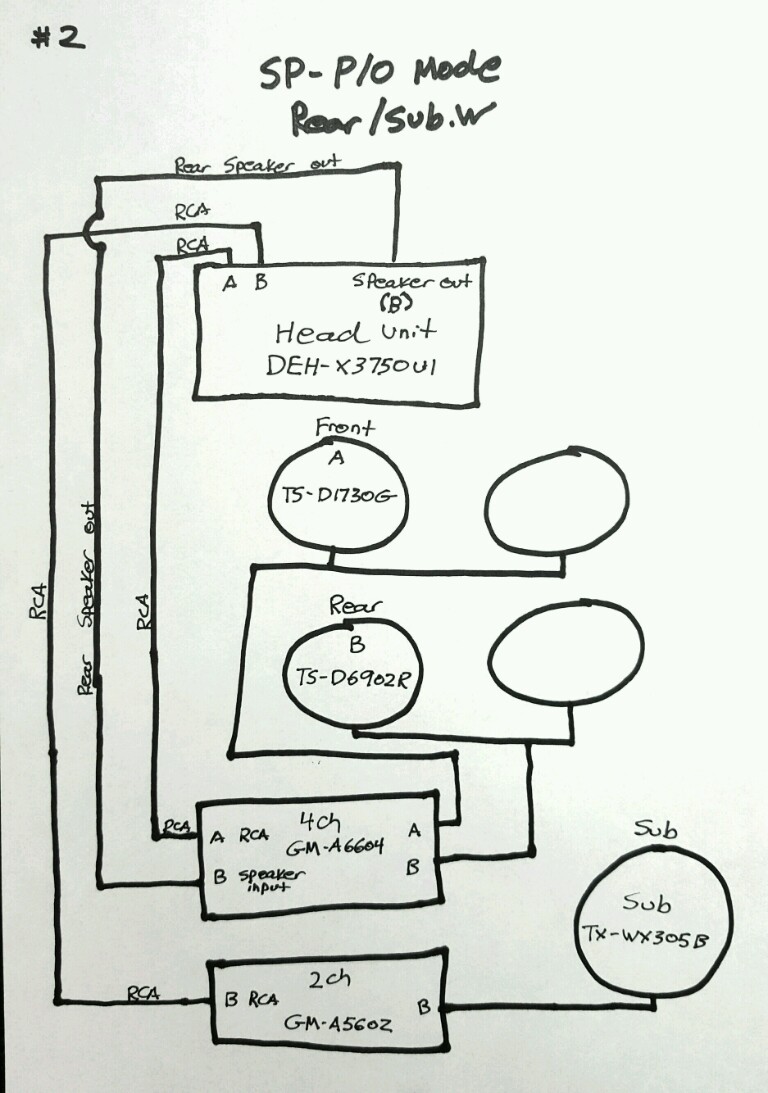 #2
SP-P/O Mode
Rear/Sub.W
Rear Speaker out
RCA
RCA
A B Speaker out
(B)
Head unit
DEH-X3750UI
Front
A
TS-D1730G
Rear
B
TS-D6902R
RCA
Rear Speaker out
RCA
RCA
4ch
A RCA A
GM-A6604
B speaker B
input
Sub
Sub
TX-WX305B
RCA
2ch
B RCA B
GM-A5602